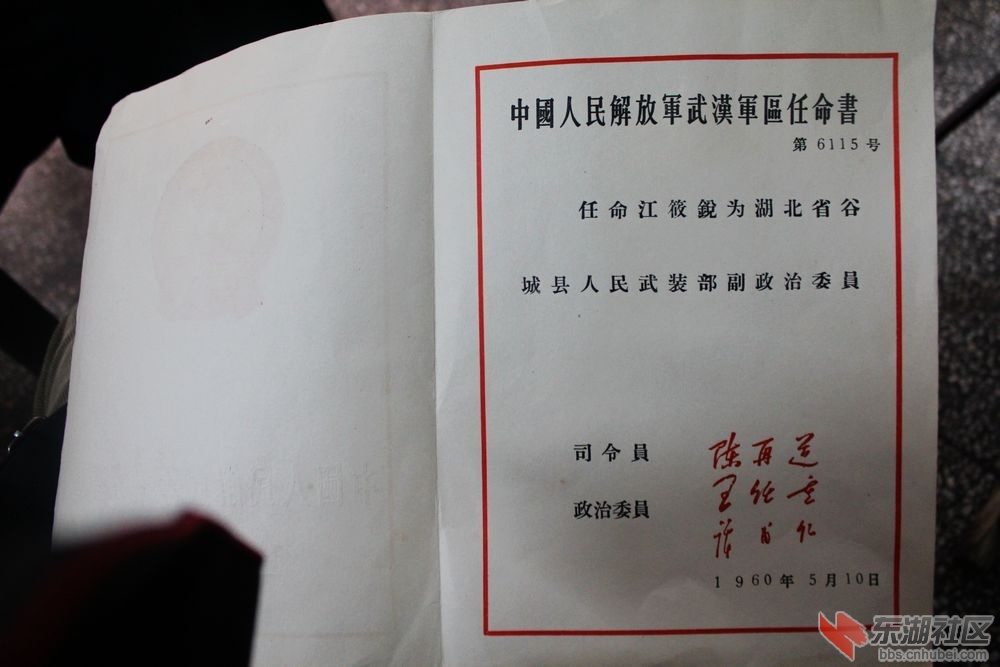 中國人民解放軍武漢軍區任命書
第 6115 号
任命江筱銳为湖北省谷
城县人民武装部副政治委員
司令員 陈再道
政治委員 王任重
譚甫仁
1960年5月10日
东湖社区
bbs.cnhubei.com